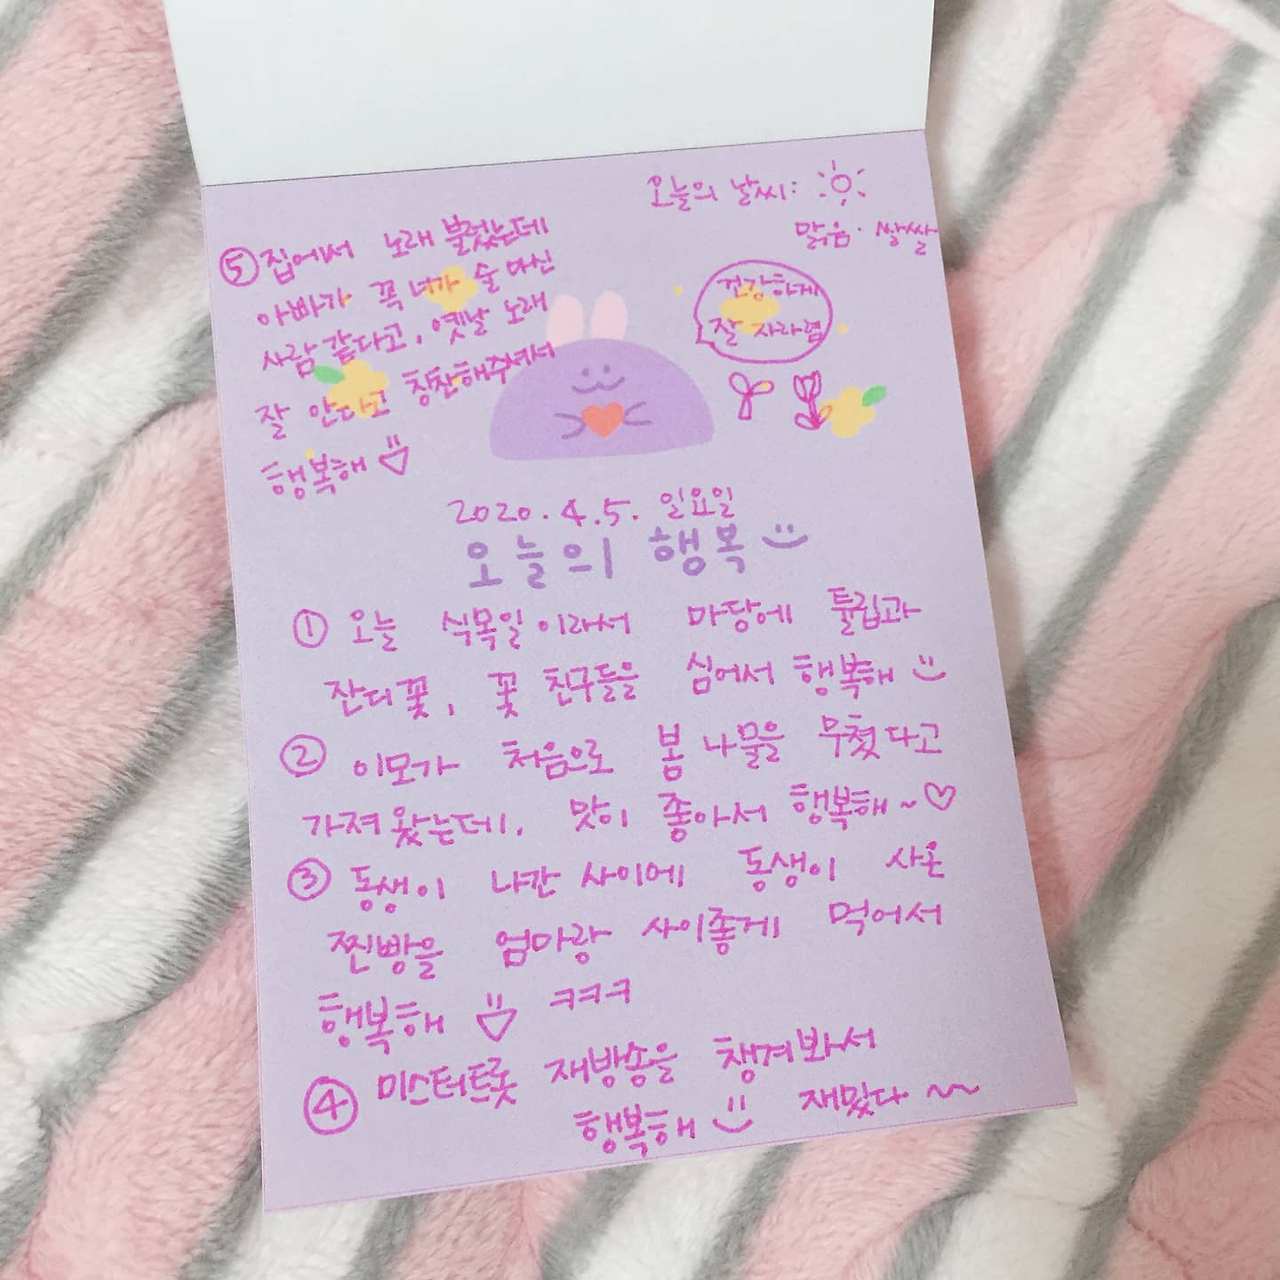 오늘의 날씨:
맑음. 쌀쌀
건강하게
잘 자라렴
2020. 4. 5. 일요일
오늘의 행복
① 오늘 식목일이라서 마당에 튤립과
잔디꽃, 꽃 친구들을 심어서 행복해
② 이모가 처음으로 봄 나물을 무쳤다고
가져왔는데, 맛이 좋아서 행복해~♡
③ 동생이 나간 사이에 동생이 사온
찐빵을 엄마랑 사이좋게 먹어서
행복해 ㅋㅋㅋ
④ 미스터트롯 재방송을 챙겨봐서
행복해 재밌다 ~~
⑤ 집에서 노래 불렀는데
아빠가 꼭 너가 술 마신
사람 같다고, 옛날 노래
잘 안다고 칭찬해주셔서
행복해